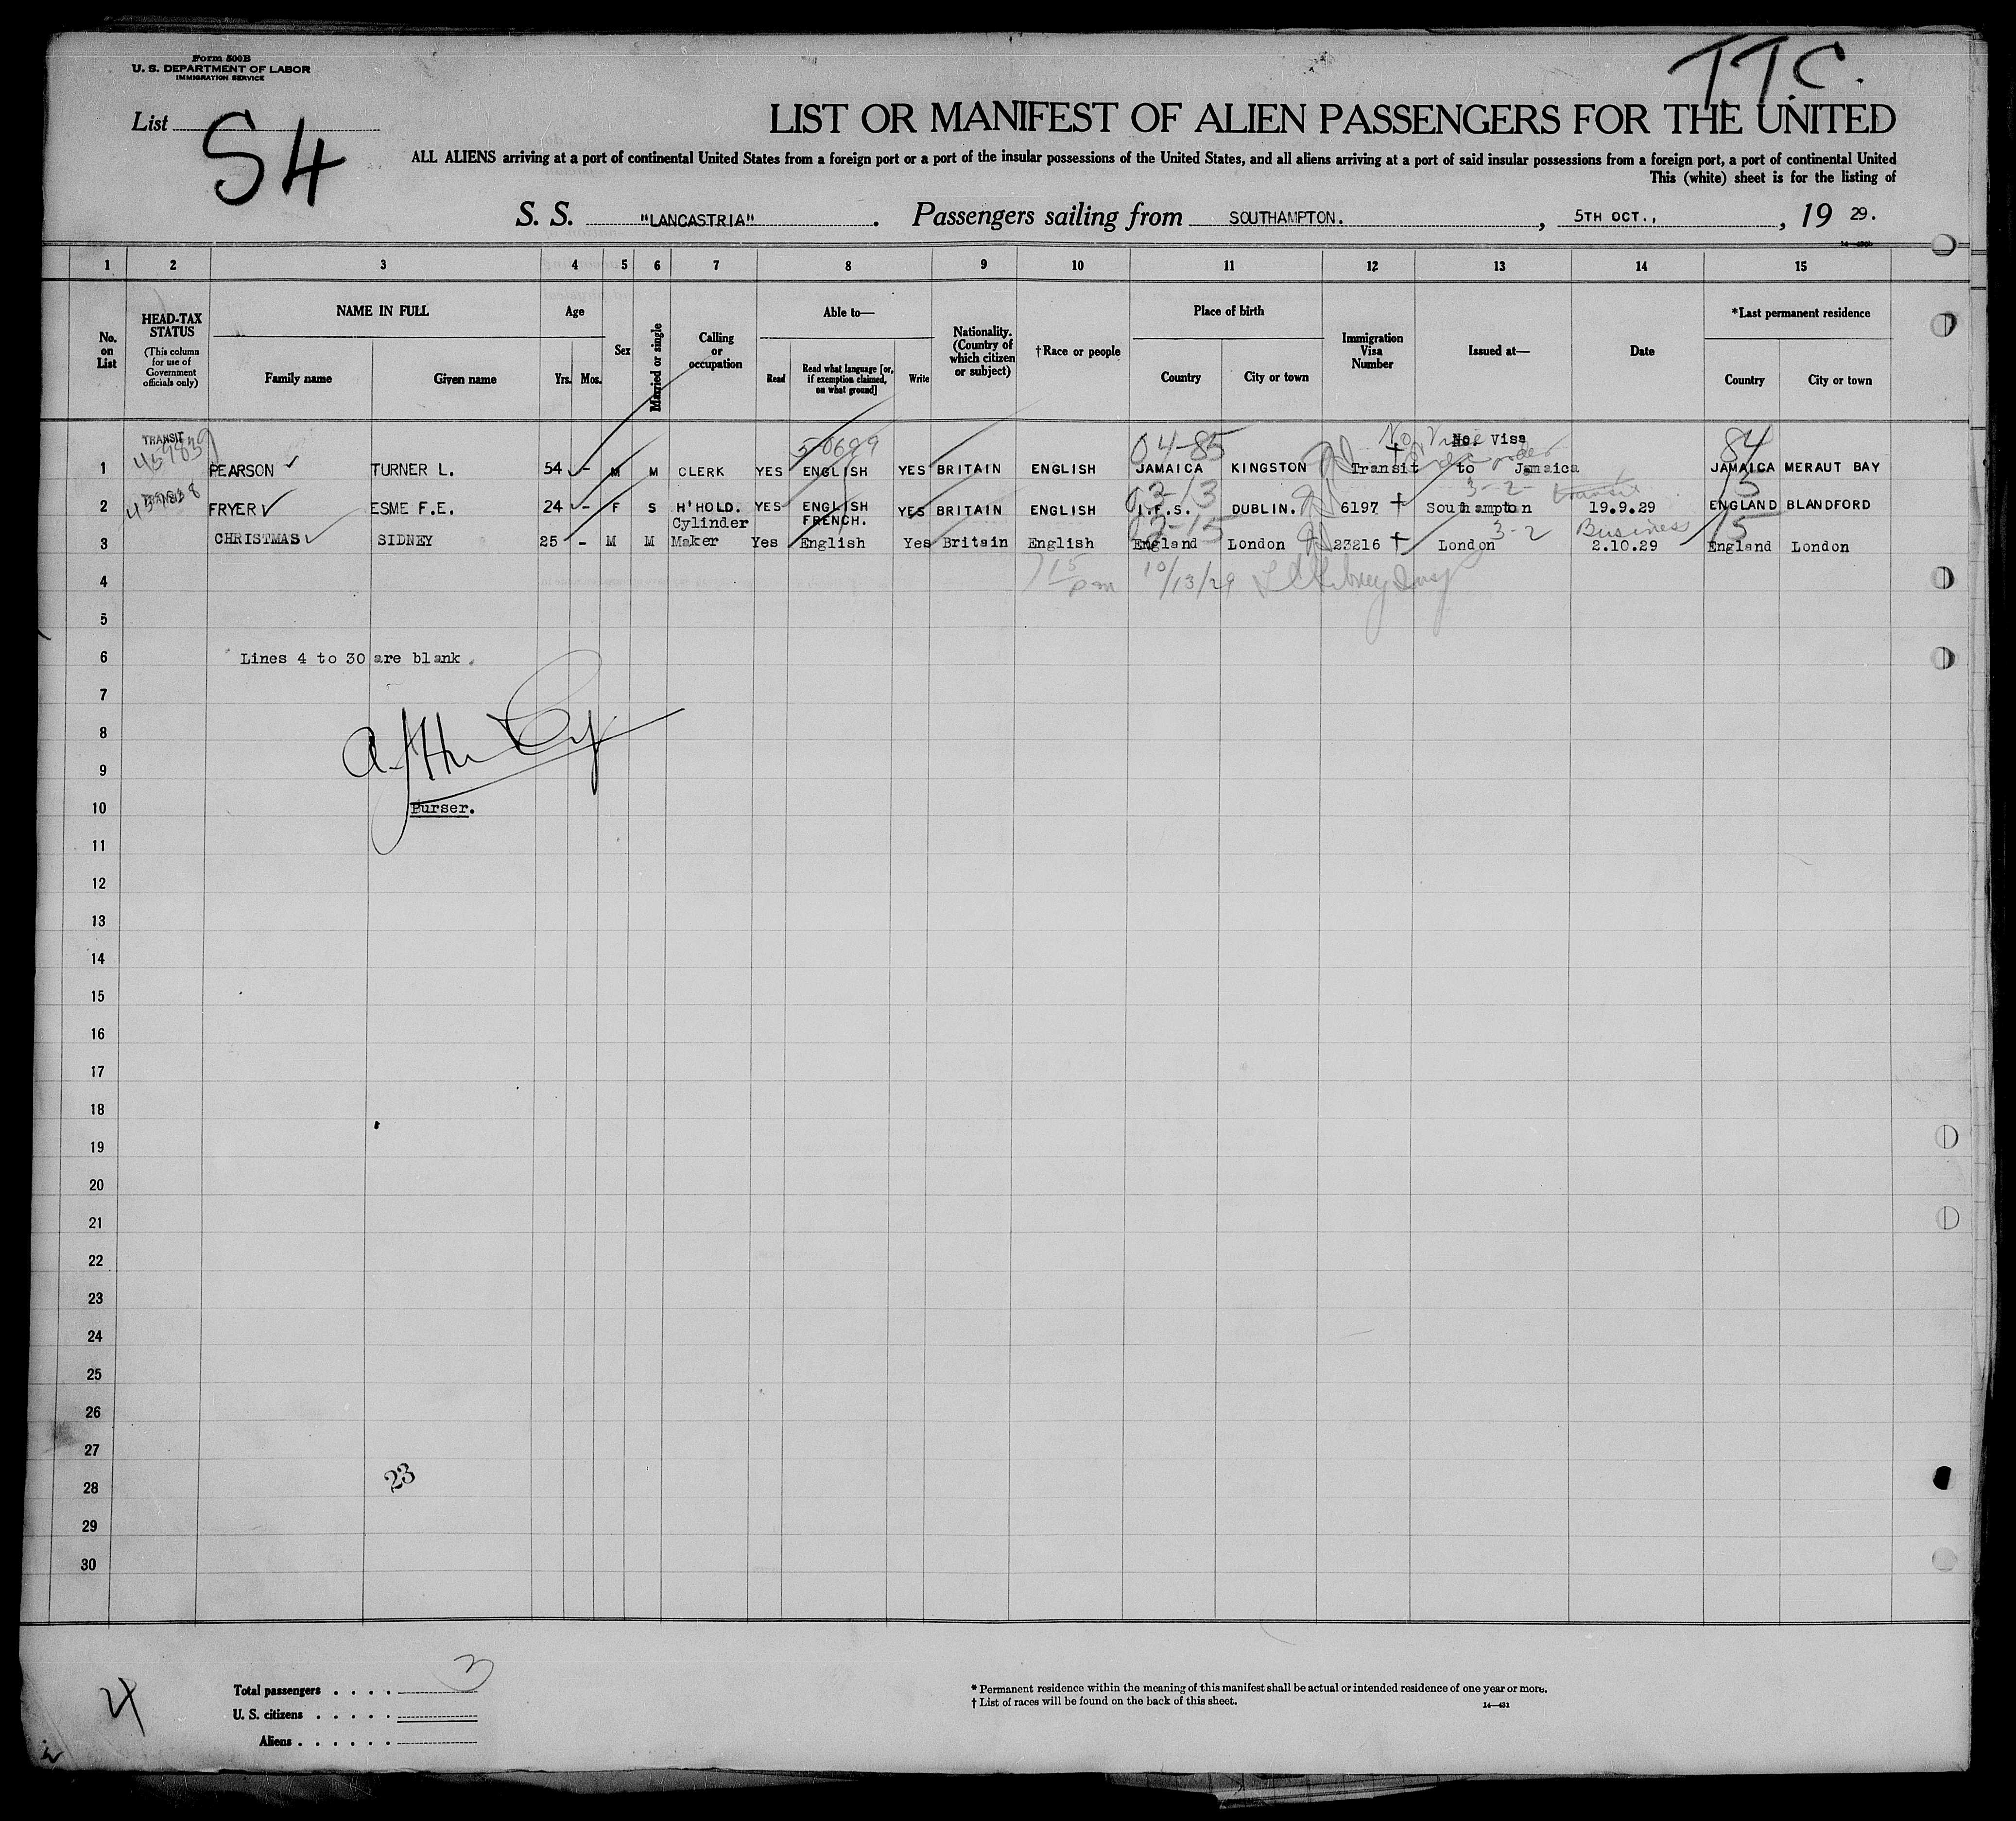 Form 500B
U. S. DEPARTMENT OF LABOR
IMMIGRATION SERVICE
TTC.
List S4
LIST OR MANIFEST OF ALIEN PASSENGERS FOR THE UNITED
ALL ALIENS arriving at a port of continental United States from a foreign port or a port of the insular possessions of the United States, and all aliens arriving at a port of said insular possessions from a foreign port, a port of continental United
This (white) sheet is for the listing of
S. S. "LANCASTRIA" . Passengers sailing from SOUTHAMPTON. , 5TH OCT., , 19 29.
1 2 3 4 5 6 7 8 9 10 11 12 13 14 15
No. on List
HEAD-TAX STATUS
(This column for use of Government officials only)
NAME IN FULL
Family name
Given name
Age
Yrs. Mos.
Sex
Married or single
Calling or occupation
Able to—
Read
Read what language [or, if exemption claimed, on what ground]
Write
Nationality. (Country of which citizen or subject)
†Race or people
Place of birth
Country
City or town
Immigration Visa Number
Issued at—
Date
*Last permanent residence
Country
City or town
TRANSIT 50699 04-85 No Visa No. Visa 84
1 PEARSON TURNER L. 54 - M M CLERK YES ENGLISH YES BRITAIN ENGLISH JAMAICA KINGSTON Transit to Jamaica JAMAICA MERAUT BAY
03-13 3-2 transit 15
2 FRYER ESME F.E. 24 - F S H'HOLD. YES ENGLISH FRENCH. YES BRITAIN ENGLISH I.F.S. DUBLIN. 6197 Southampton 19.9.29 ENGLAND BLANDFORD
3-2 Business 15
3 CHRISTMAS SIDNEY 25 - M M Cylinder Maker Yes English Yes Britain English England London 23216 London 2.10.29 England London
4 pm 10/13/29
5
6 Lines 4 to 30 are blank.
7
8
9
10 Purser.
11
12
13
14
15
16
17
18
19
20
21
22
23
24
25
26
27
23
28
29
30
Total passengers . . . . 3
U. S. citizens . . . . .
Aliens . . . . . .
* Permanent residence within the meaning of this manifest shall be actual or intended residence of one year or more.
† List of races will be found on the back of this sheet.
14—431